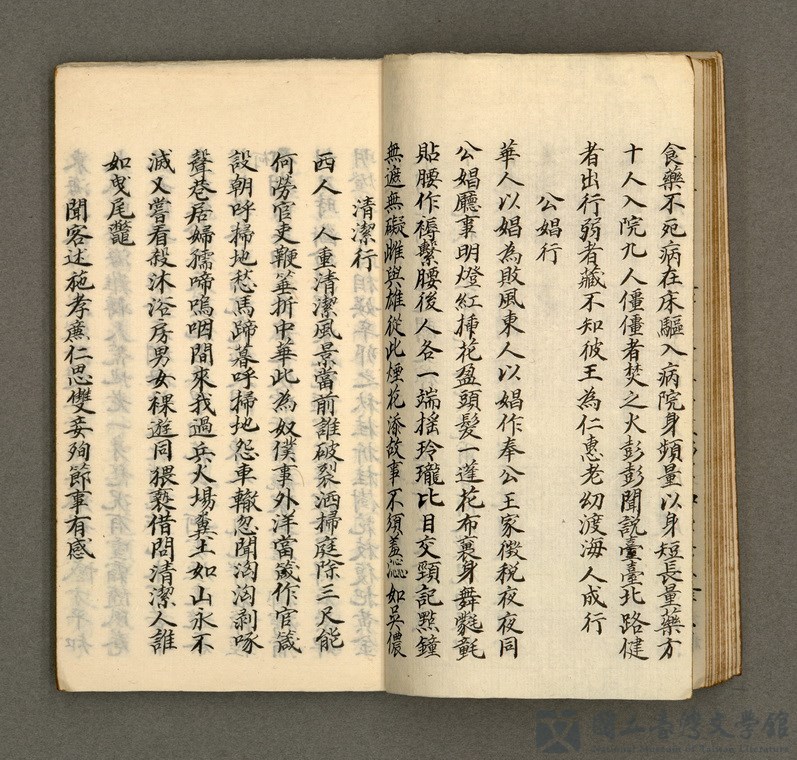 食藥不死病在床驅入病院身頻量以身短長量藥方
十人入院九人僵僵者焚之火彭彭聞説臺臺北路健
者出行弱者藏不知彼王為仁惠老幼渡海人成行
公娼行
華人以娼為敗風東人以娼作奉公王家徵税夜夜同
公娼廳事明燈紅插花盈頭髮一蓬花布裹身舞氍毹
貼腰作褥繫腰後人各一端搖玲瓏比目交頸記點鐘
無遮無礙雌與雄從此煙花添故事不須羞沁如吳儂
清潔行
西人時人重清潔風景當前誰破裂洒掃庭除三尺能
何勞官吏鞭箠折中華此為奴僕事外洋當箴作官箴
設朝呼掃地愁馬蹄暮呼掃地怨車轍忽聞洶洶剥啄
聲巷居婦孺啼嗚咽間來我過兵火場糞土如山永不
滅又嘗看殺沐浴房男女裸遊同猥褻借問清潔人誰
如曳尾鼈
聞客述施孝廉仁思雙妾殉節事有感
國立臺灣文學館
National Museum of Taiwan Literature